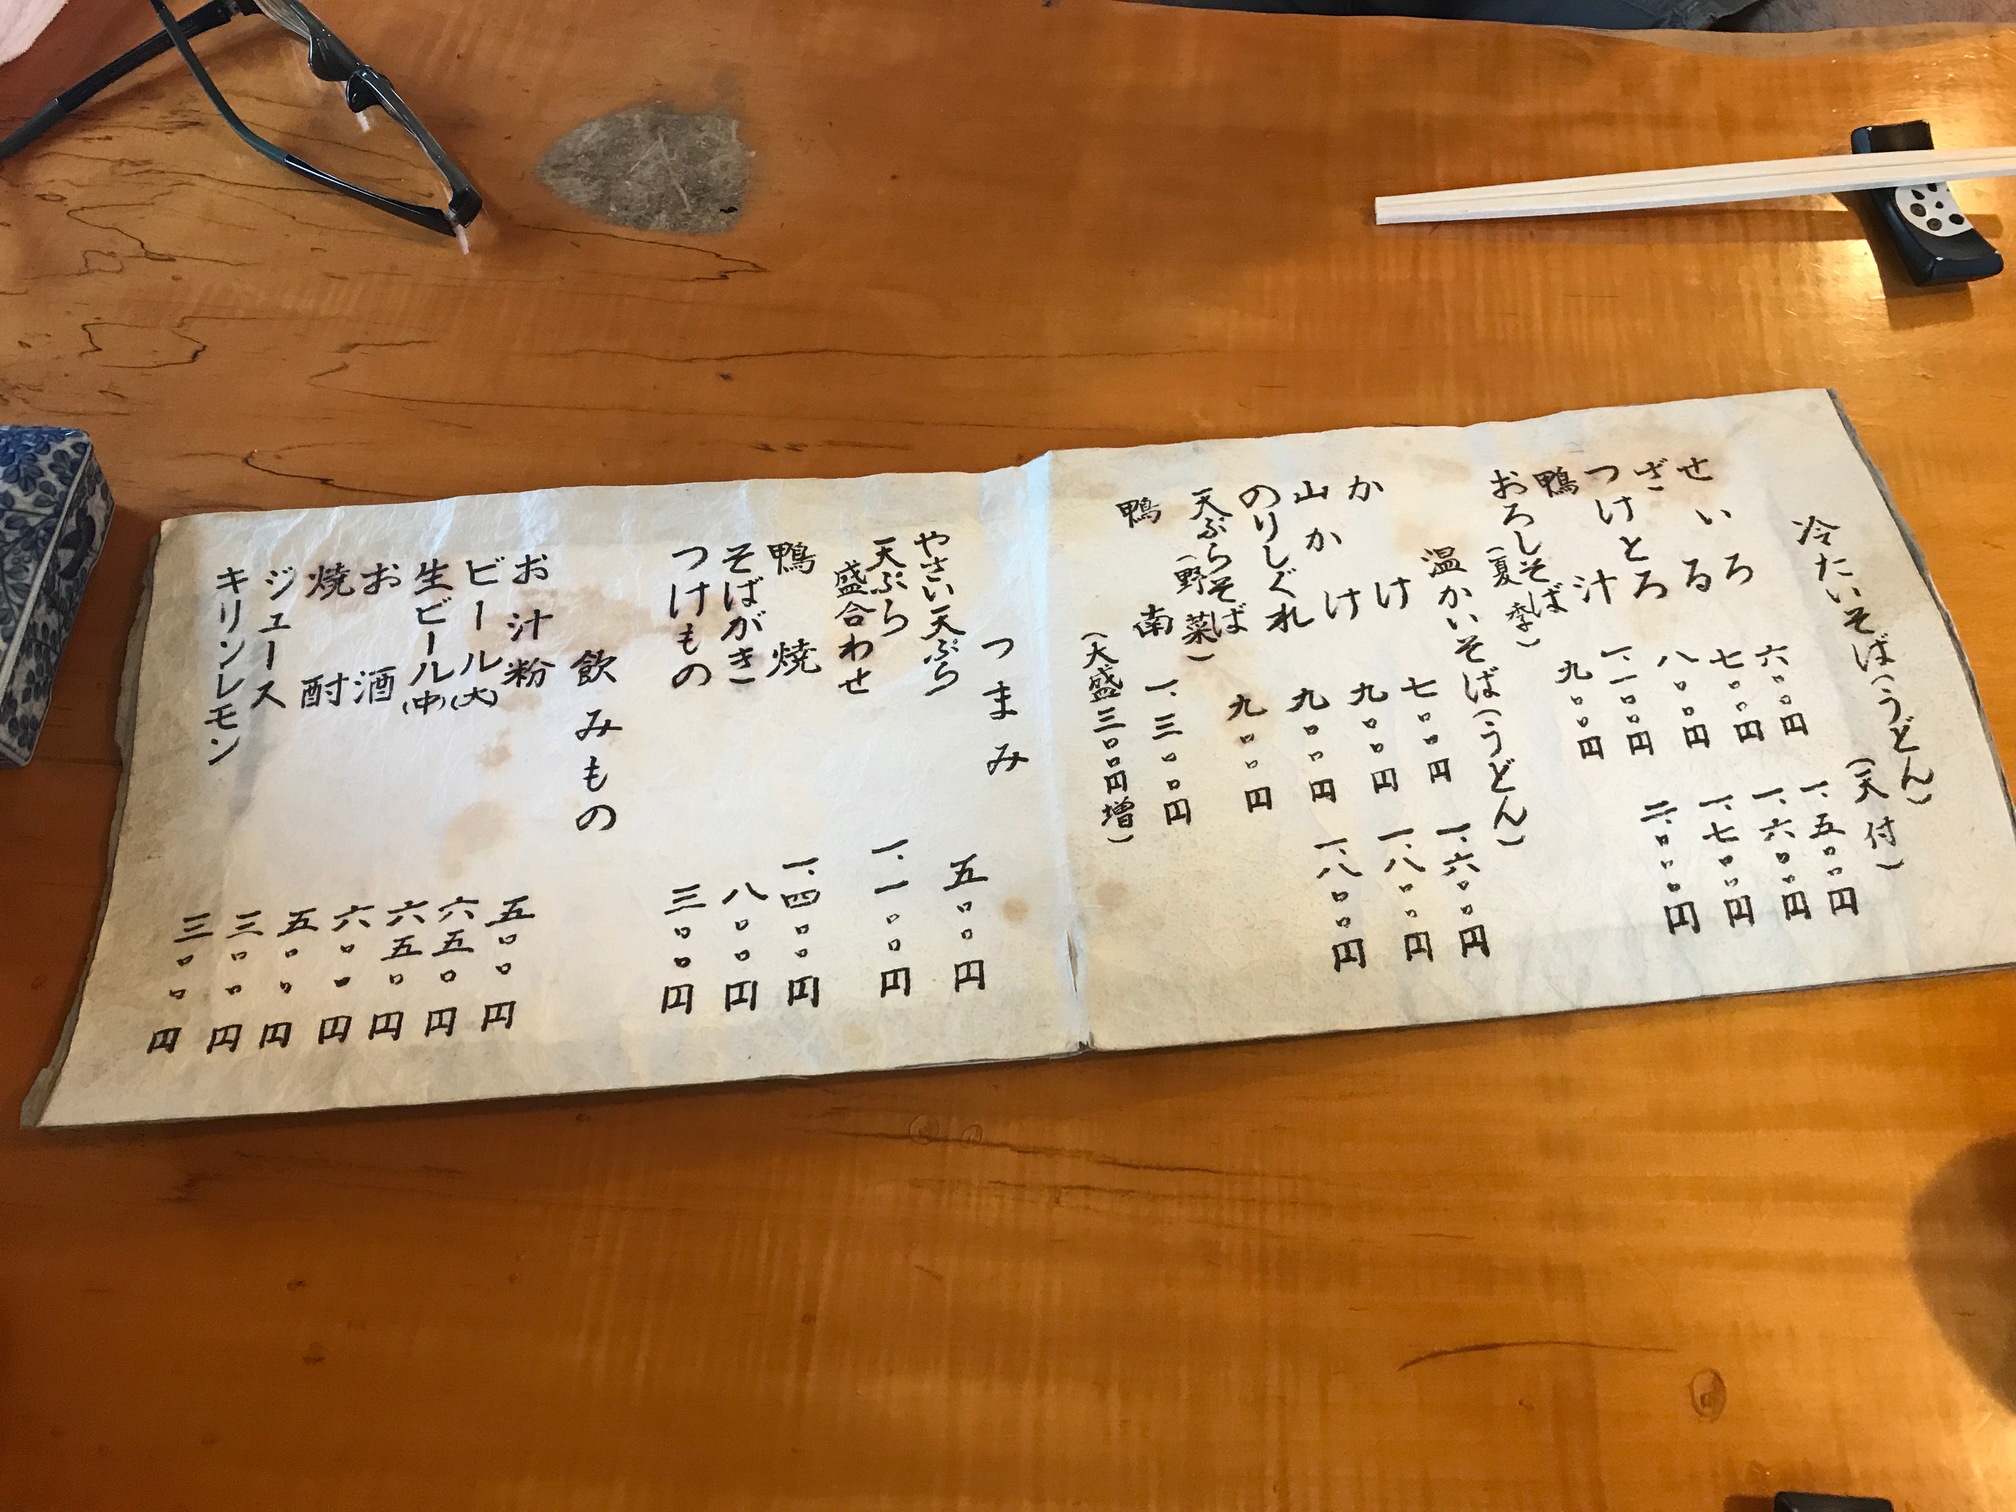 冷たいそば(うどん)
(天付)
せいろ 六〇〇円 一、五〇〇円
ざる 七〇〇円 一、六〇〇円
つけとろ 八〇〇円 一、七〇〇円
鴨汁 一、一〇〇円 二、〇〇〇円
おろしそば 九〇〇円
(夏季)
温かいそば(うどん)
かけ 七〇〇円 一、六〇〇円
山かけ 九〇〇円 一、八〇〇円
のりしぐれ 九〇〇円 一、八〇〇円
天ぷらそば 九〇〇円
(野菜)
鴨南 一、三〇〇円
(大盛三〇〇円増)
つまみ
やさい天ぷら 五〇〇円
天ぷら
盛合わせ 一、一〇〇円
鴨焼 一、四〇〇円
そばがき 八〇〇円
つけもの 三〇〇円
飲みもの
お汁粉 五〇〇円
ビール(大) 六五〇円
生ビール(中) 六五〇円
お酒 六〇〇円
焼酎 五〇〇円
ジュース 三〇〇円
キリンレモン 三〇〇円